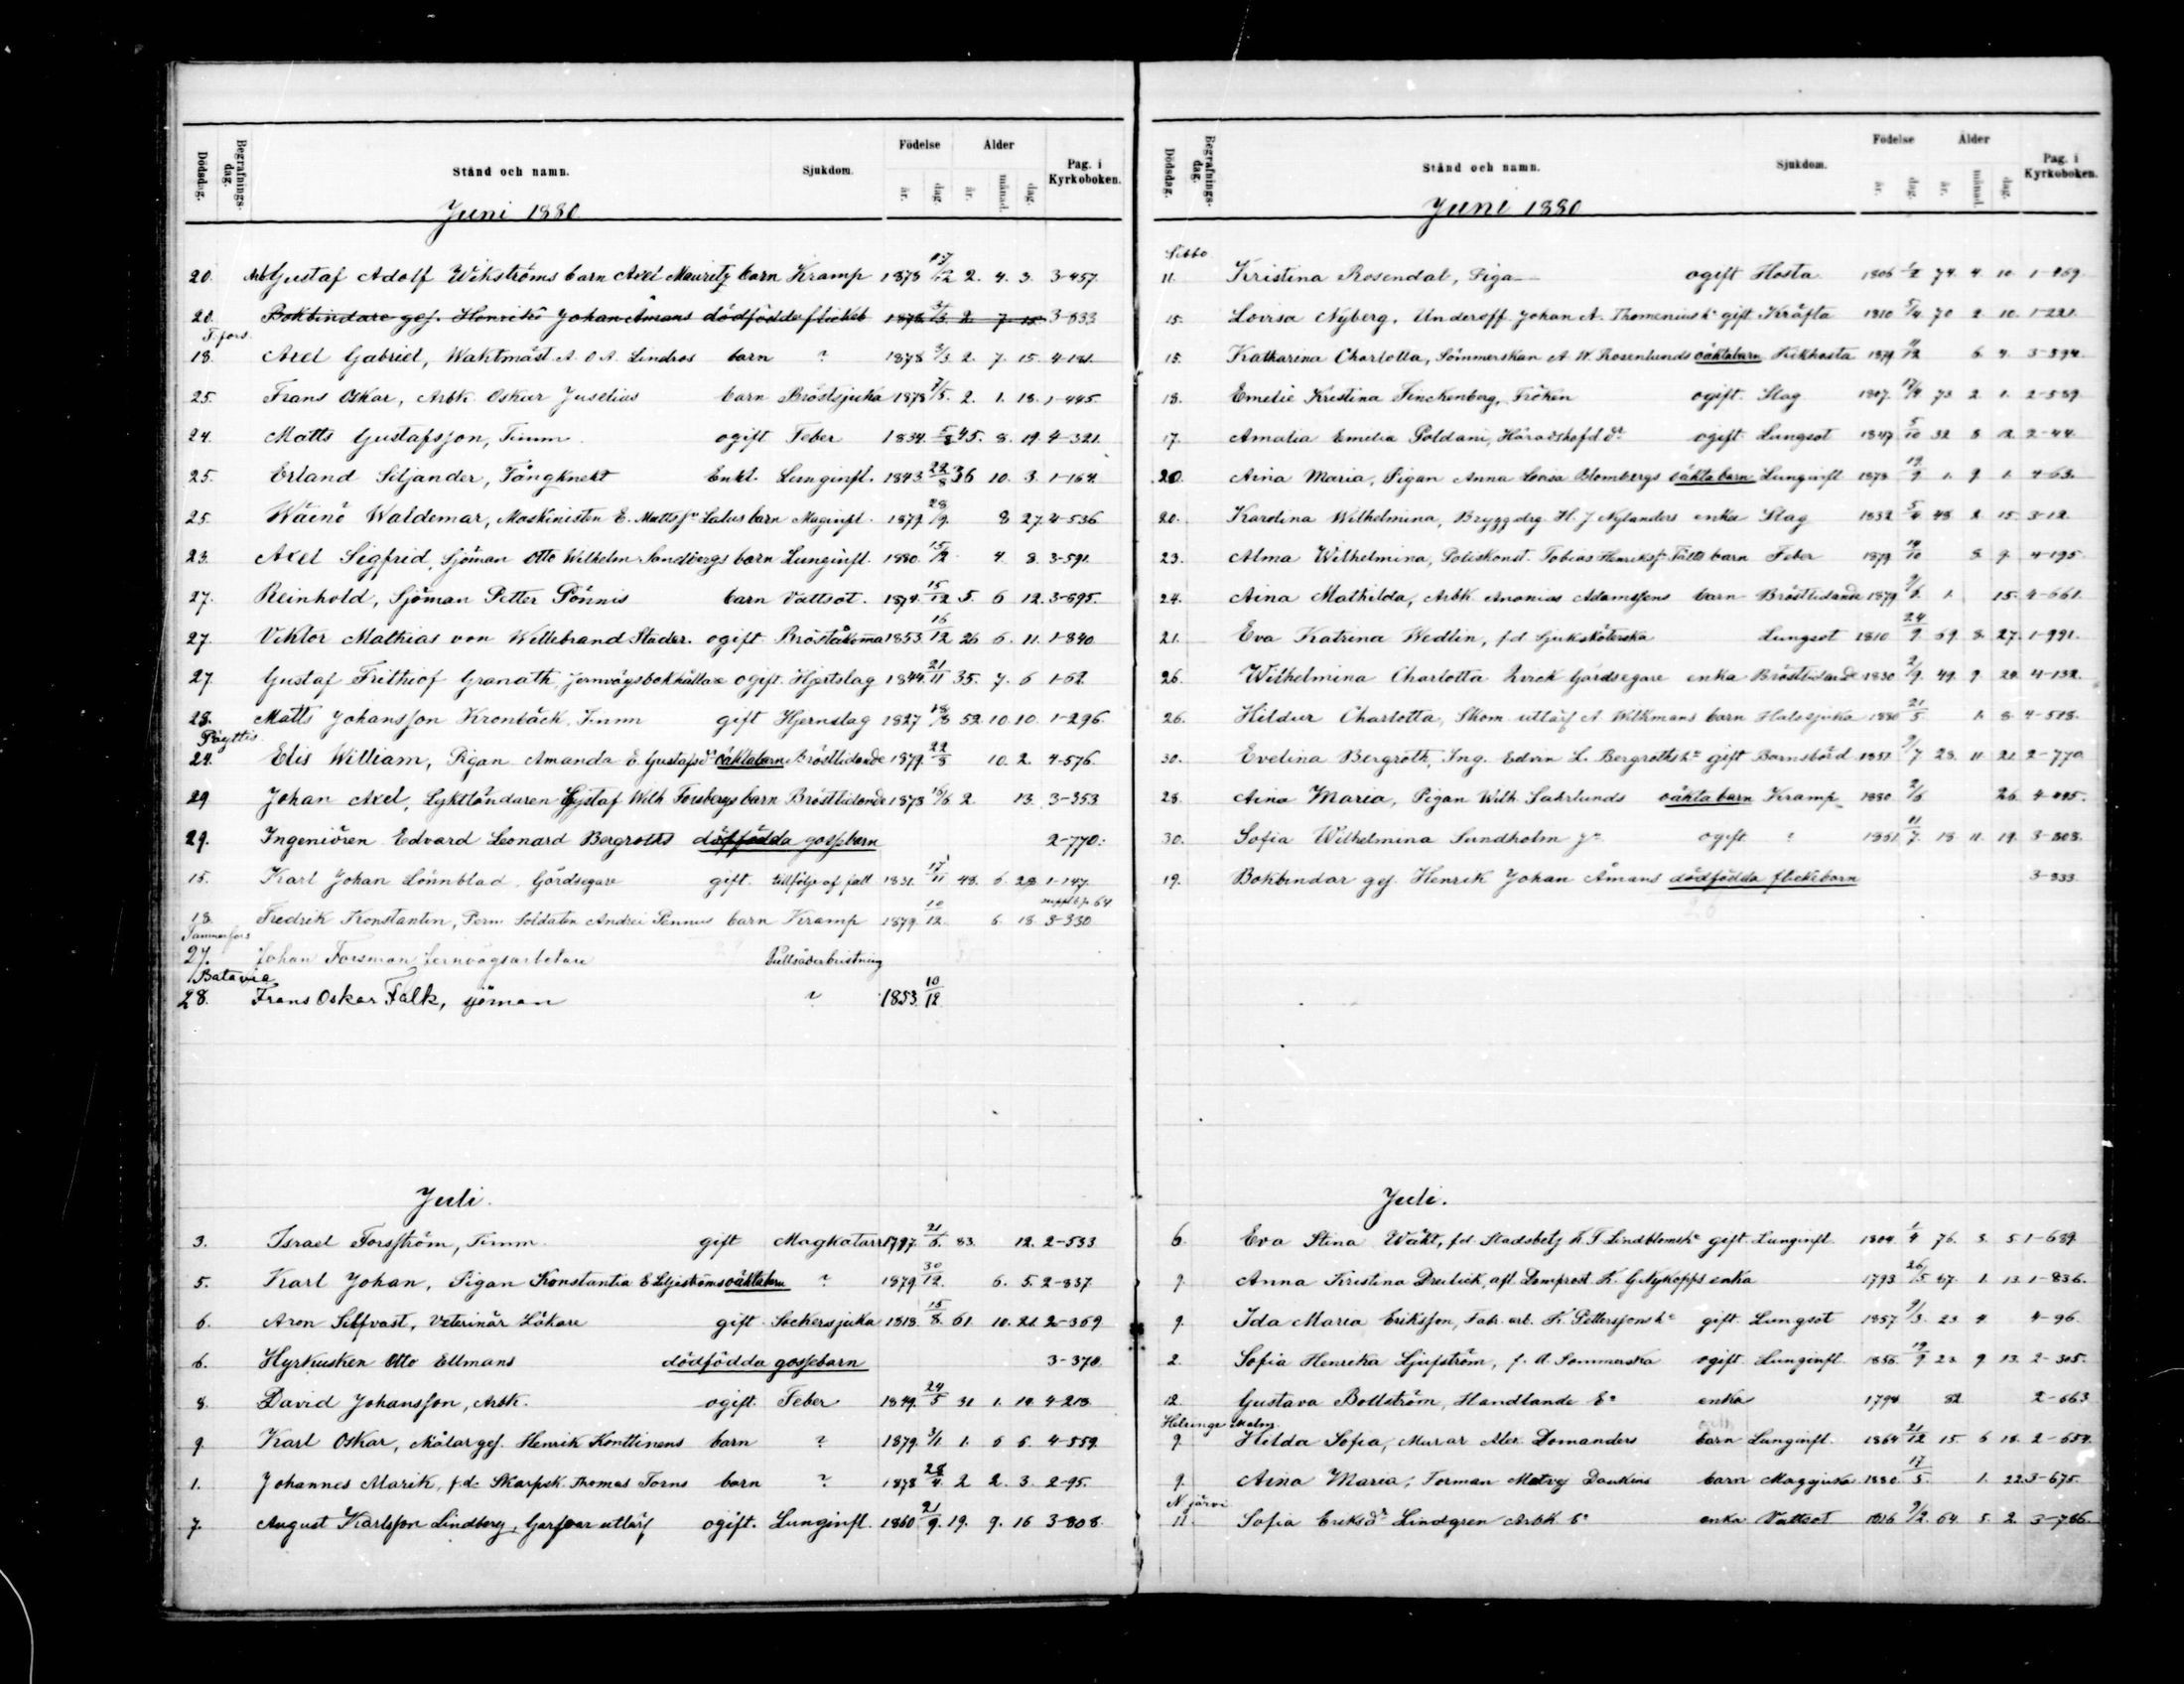 Dödsdag. Begrafnings-dag. Stånd och namn. Sjukdom. Födelse år. dag. Ålder år. månad. dag. Pag. i Kyrkoboken.
Juni 1880
20. Arb Gustaf Adolf Wikströms barn Axel Mauritz barn Kramp 1878 17/12 2. 4. 3. 3-457.
20. Bokbindare ges. Henriks Johan Åmans dödfödda flickeb 1878 3/3 2. 7. 15. 3-833
T.fors.
18. Axel Gabriel, Waktmäst. A. O. A. Lindros barn ? 1878 3/3 2. 7. 15. 4-181.
25. Frans Oskar, Arbk. Oskar Juselius barn Bröstsjuka 1878 7/5. 2. 1. 18. 1-445.
24. Matts Gustafsson, Timm. ogift Feber 1834. 5/8 45. 8. 19. 4-321.
25. Erland Siljander, Fångknekt Enkl. Lunginfl. 1843 22/8 36 10. 3. 1-164.
25. Wäinö Waldemar, Maskinisten E. Mattsn Salus barn Maginfl. 1879. 28/9. 8 27. 4-536
23. Axel Sigfrid, Sjöman Otto Wilhelm Sandbergs barn Lunginfl. 1880. 15/2 4. 8. 3-591.
27. Reinhold, Sjöman Petter Pönnis barn Vattsot. 1874. 15/12 5. 6 12. 3-695.
27. Viktor Mathias von Willebrand Studer. ogift Bröståkoma 1853. 16/12 26 6. 11. 1-840
27. Gustaf Frithiof Granath, Jernvägsbokhållare ogift. Hjertslag 1844. 21/11 35. 7. 6 1-62.
28. Matts Johansson Kronbäck, Timm gift Hjernslag 1827 18/8 52. 10. 10. 1-296.
Pöyttis.
24. Elis William, Pigan Amanda E. Gustafsdr oäkta barn Bröstlidande 1879. 22/8 10. 2. 4-576.
29 Johan Axel, Lykttändaren Gustaf Wilh. Forsbergs barn Bröstlidande 1878 16/6 2. 13. 3-353
29. Ingeniören Edvard Leonard Bergroths dödfödda gossebarn 2-770.
15. Karl Johan Lönnblad, Gårdsegare gift. tillfölje af fall 1831. 17/11 48. 6 28 1-147.
13. Fredrik Konstantin, Perm. Soldaten Andrei Pennus barn Kramp 1879. 10/12. 6. 18 3-330
Tammerfors
27. Johan Forsman Jernvägsarbetare Pulsåderbristning
Batavia
28. Frans Oskar Falk, sjöman ? 1853. 10/12
Juli.
3. Israel Forsström, Timm. gift Magkatarr 1797. 21/6. 83. 12. 2-533
5. Karl Johan, Pigan Konstantia E Liljeströms oäkta barn ? 1879. 30/12. 6. 5. 2-837.
6. Aron Selfvast, Veterinär Läkare gift Sockersjuka 1818. 15/8. 61. 10. 21. 2-369
6. Hyrkusken Otto Ellmans dödfödda gossebarn 3-370.
8. David Johansson, Arbk. ogift. Feber 1849. 24/5 31 1. 14. 4-213.
9. Karl Oskar, Målar ges. Henrik Konttinens barn ? 1879. 3/1 1. 6 6. 4-559.
1. Johannes Marik, f.d. Skarpsk. Thomas Torns barn ? 1878 28/4. 2 2. 3. 2-95.
7. August Karlsson Lindberg, Garfvar utlärl ogift. Lunginfl. 1860 21/9. 19. 9. 16 3-808.
Dödsdag. Begrafnings-dag. Stånd och namn. Sjukdom. Födelse år. dag. Ålder år. månad. dag. Pag. i Kyrkoboken.
Juni 1880
Sibbo
11. Kristina Rosendal, Piga ogift Hosta 1806 1/2 74. 4. 10. 1-969.
15. Lovisa Nyberg, Underoff. Johan A. Thomenius ha gift Kräfta 1810 5/4. 70 2. 10. 1-221.
15. Katharina Charlotta, Sömmerskan A. W. Rosenlunds oäkta barn Kikhosta 1879. 11/12 6. 4. 3-594.
18. Emelie Kristina Finckenberg, Fröken ogift. Slag 1807. 17/4. 73 2. 1. 2-589.
17. Amalia Emelia Poldani, Häradshöfd dr ogift. Lungsot 1847 5/10 32 8 12. 2-44.
20. Aina Maria, Pigan Anna Lovisa Blombergs oäkta barn Lunginfl. 1878 19/9 1. 9. 1. 4-63.
20. Karolina Wilhelmina, Brygg.drg. H. J. Nylanders enka Slag 1832 5/4 48. 2. 15. 3-12.
23. Alma Wilhelmina, Poliskonst. Tobias Henrikss Fälts barn Feber 1879. 14/10 8. 9. 4-195.
24. Aina Mathilda, Arbk. Ananias Adamssons barn Bröstlidande 1879. 9/6. 1. 15. 4-661.
21. Eva Katrina Wedlin, f.d. Sjuksköterska Lungsot 1810 24/9. 69. 8. 27. 1-991.
26. Wilhelmina Charlotta Zwick Gårdsegare enka Bröstlidande 1830 2/9. 49. 9. 24. 4-132.
26. Hildur Charlotta, Skom. utlärl A. Wilkmans barn Halssjuka 1880 21/5. 1. 8. 4-518.
30. Evelina Bergroth, Ing. Edvin L. Bergroths ha gift Barnsbörd 1851 9/7 28. 11. 21. 2-770.
28. Aina Maria, Pigan Wilh. Sahrlunds oäkta barn Kramp 1880. 2/6 26. 4-495.
30. Sofia Wilhelmina Sundholm ja ogift ? 1861. 11/7. 18 11. 19. 3-808.
19. Bokbindar ges. Henrik Johan Åmans dödfödda flickebarn 3-833.
Juli.
6. Eva Stina Wäkt, f.d. Stadsbetj. K. F. Lindbloms ha gift. Lunginfl. 1804. 1/4 76. 3. 5. 1-689.
9. Anna Kristina Deulick, afl. Domprost. K. G. Nykopps enka 1793 26/5 87. 1. 13. 1-836.
9. Ida Maria Eriksson, Fabr. arb. K. Petterssons ha gift Lungsot 1857 9/3. 23 4. 4-96.
2. Sofia Henrika Ljufström, f. A. Sömmerska ogift Lunginfl. 1856. 19/9. 23. 9. 13. 2-305.
12. Gustava Bollström, Handlande Ea enka 1794 82 2-663
Helsinge Malm.
9. Hilda Sofia, Murar Alex. Domanders barn Lunginfl. 1864 21/12 15. 6 18. 2-659.
9. Aina Maria, Forman Matvej Daukins barn Magsjuka. 1880. 17/5. 1. 22. 3-675.
N.järvi
11. Sofia Eriksdr Lindgren Arbk. Ea enka Vattsot 1816 9/2. 64. 5. 2. 3-786.